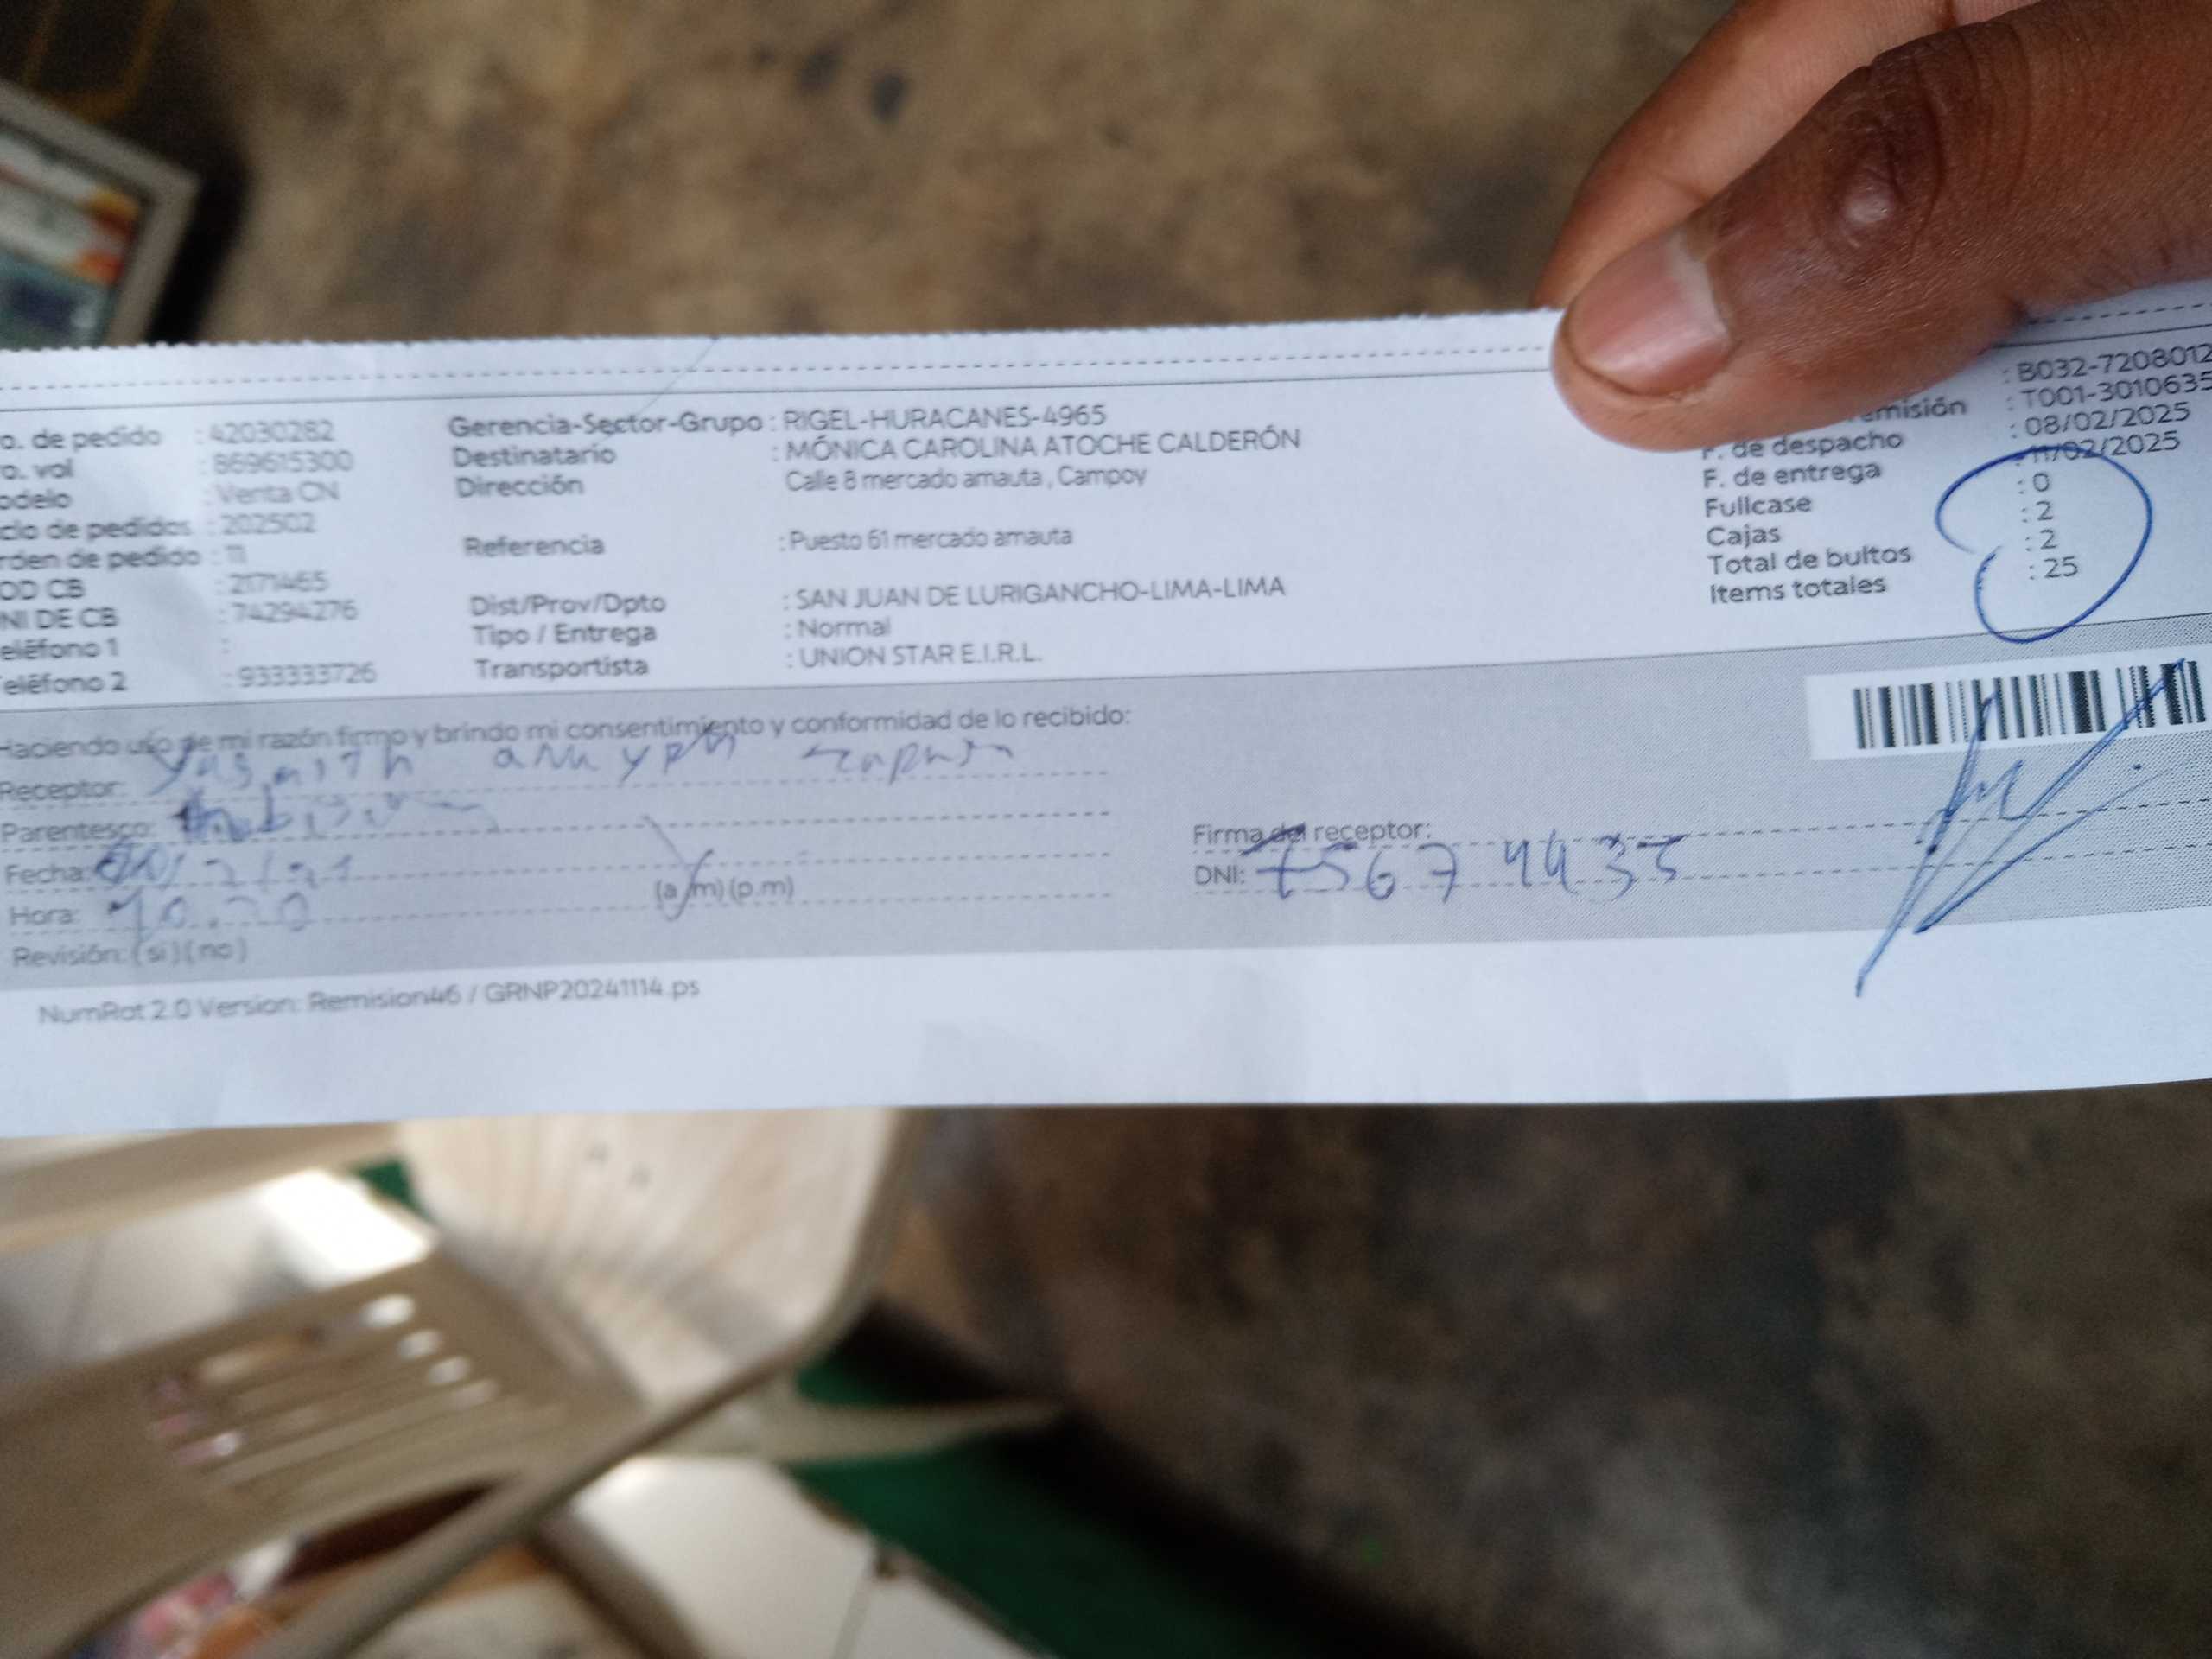 o. de pedido : 42030282
o. val : 869615300
odelo : Venta CN
clo de pedidos : 202502
rden de pedido : 11
OD CB : 2171465
NI DE CB : 74294276
eléfono 1 :
eléfono 2 : 933333726
Gerencia-Sector-Grupo : RIGEL-HURACANES-4965
Destinatario : MÓNICA CAROLINA ATOCHE CALDERÓN
Dirección Calle 8 mercado amauta, Campoy
Referencia : Puesto 61 mercado amauta
Dist/Prov/Dpto : SAN JUAN DE LURIGANCHO-LIMA-LIMA
Tipo / Entrega : Normal
Transportista : UNION STAR E.I.R.L.
: B032-7208012
emisión : T001-3010635
F. de despacho : 08/02/2025
F. de entrega : 11/02/2025
Fullcase : 0
Cajas : 2
Total de bultos : 2
Items totales : 25
Haciendo uso de mi razón firmo y brindo mi consentimiento y conformidad de lo recibido:
Receptor: Yasmith
Parentesco:
Fecha:
Hora: (a.m) (p.m)
Revisión: (si) (no)
Firma del receptor:
DNI: 75674435
NumRot 2.0 Version: Remision46 / GRNP20241114.ps